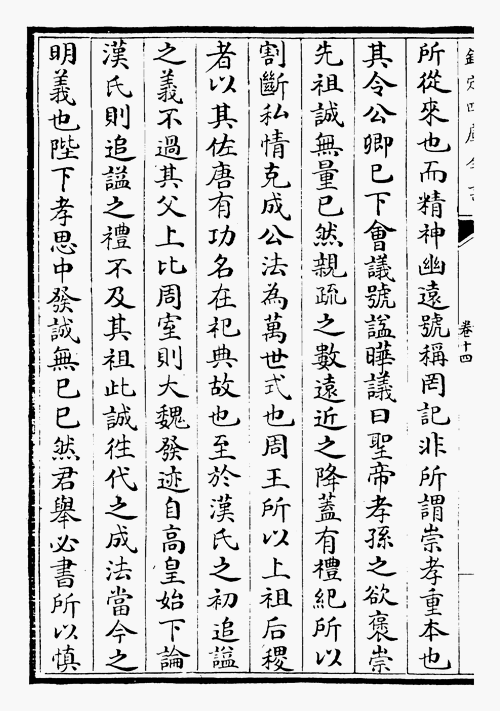 欽定四庫全書
卷十四
所從來也而精神幽遠號稱罔記非所謂崇孝重本也
其令公卿已下會議號諡曄議曰聖帝孝孫之欲褒崇
先祖誠無量已然親疏之數遠近之降蓋有禮紀所以
割斷私情克成公法為萬世式也周王所以上祖后稷
者以其佐唐有功名在祀典故也至於漢氏之初追諡
之義不過其父上比周室則大魏發迹自高皇始下論
漢氏則追諡之禮不及其祖此誠徃代之成法當今之
明義也陛下孝思中發誠無已已然君舉必書所以慎